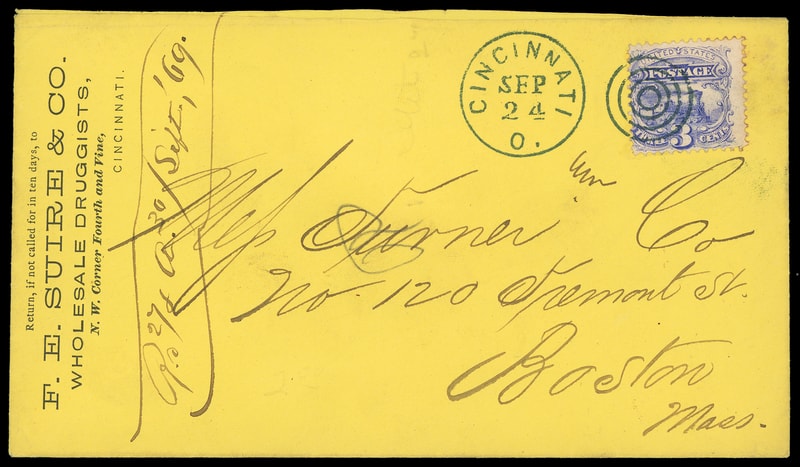 Return, if not called for in ten days, to
F. E. SUIRE & CO.
WHOLESALE DRUGGISTS,
N. W. Corner Fourth and Vine,
CINCINNATI.
Sept, '69.
CINCINNATI
SEP
24
O.
UNITED STATES
POSTAGE
3 CENTS
Turner Co
No. 120 Tremont St.
Boston
Mass.